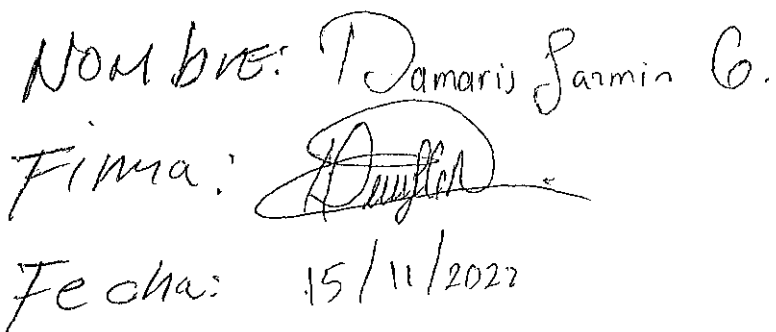 Nombre: Damaris Jazmin G.
Firma:
Fecha: 15/11/2022